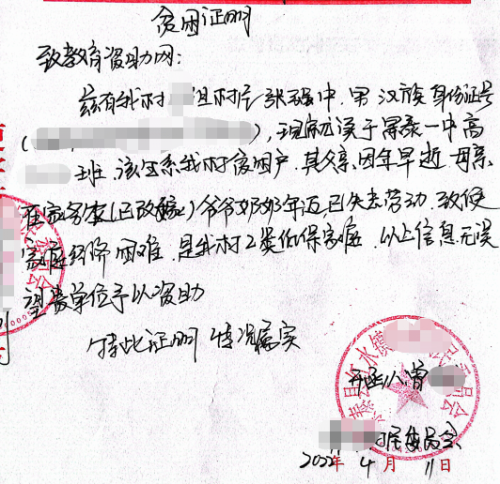 贫困证明
致教育资助网:
兹有我村 组村民张强中,男 汉族 身份证号
( ),现就读于 一中高
班 该生系我村贫困户,其父亲因年早逝 母亲
在家务农(已改嫁)爷爷奶奶年迈,已失去劳动,致使
家庭经济困难,是我村2类低保家庭,以上信息无误
望贵单位予以资助
特此证明 情况属实
开函人曾
居委员会
2022年4月11日